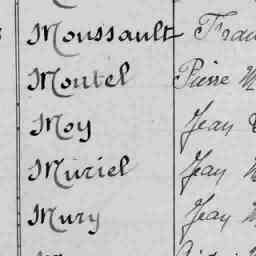 Moussault Fran
Montel Pierre M
Moy Jean
Muriel Jean
Mury Jean M